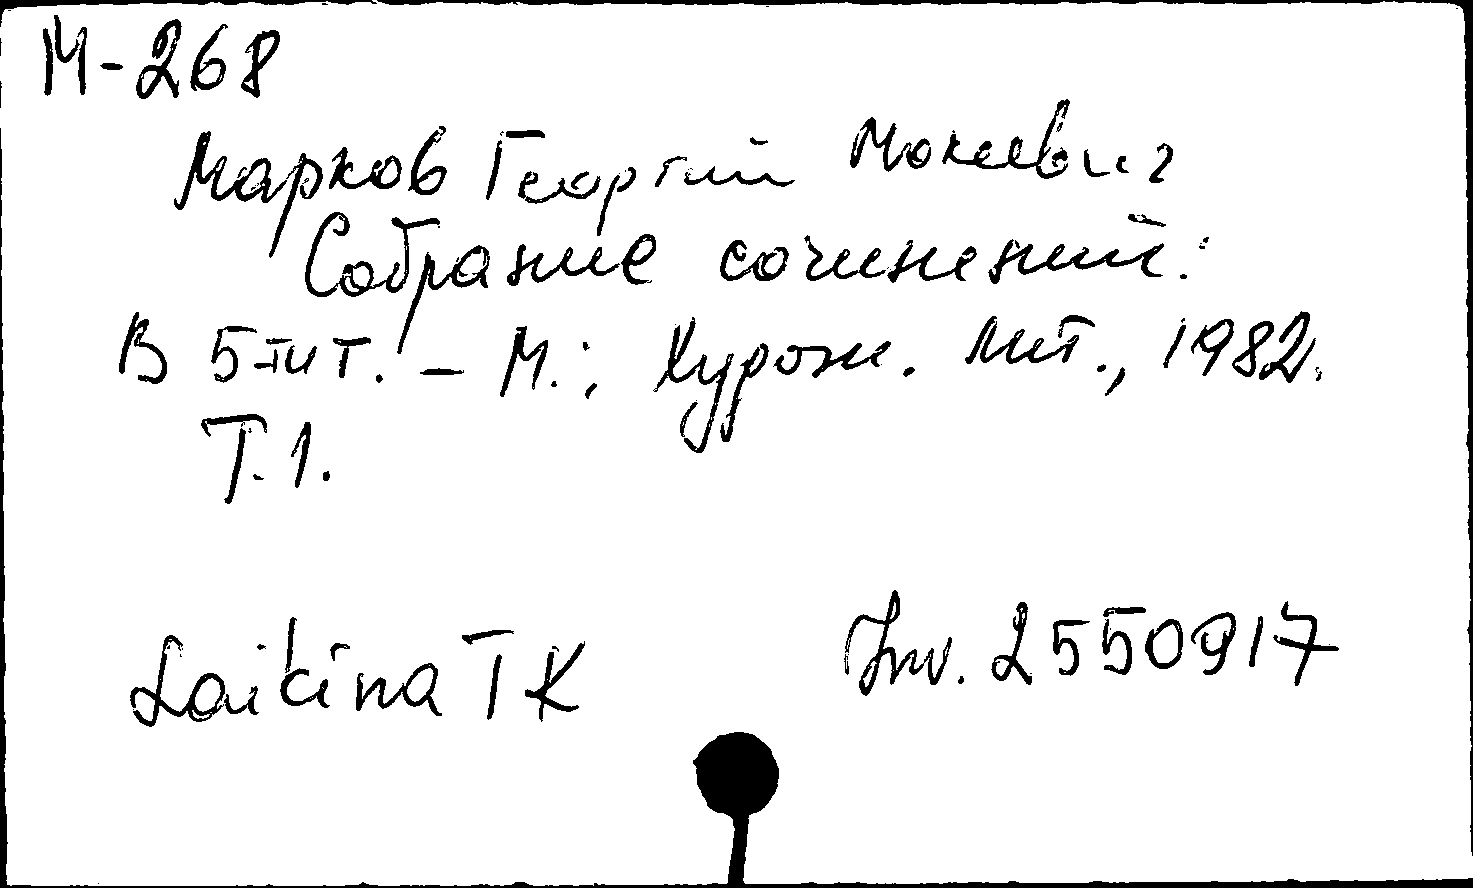 М-268
Марков Георгий Мокеевич
Собрание сочинений:
В 5-ти т. – М.: Худож. лит., 1982.
Т.1.
Laikina TK
Inv. 2550917